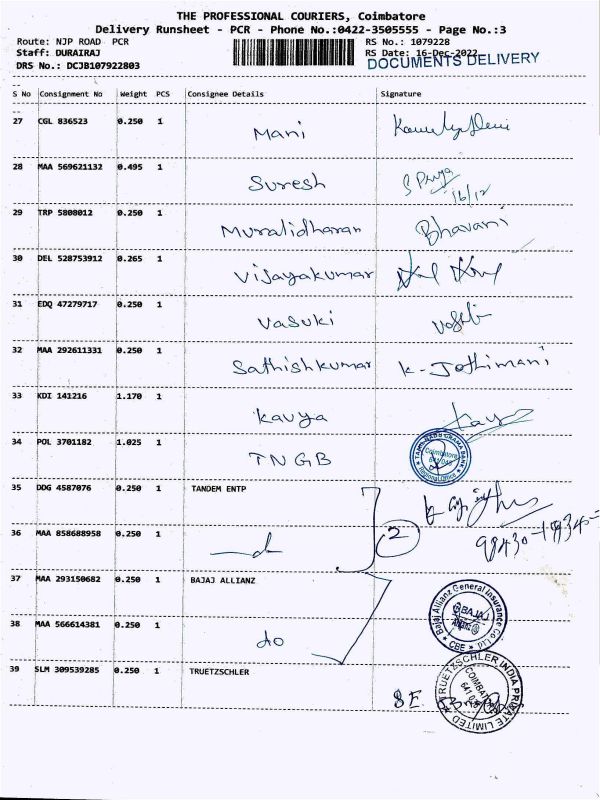 THE PROFESSIONAL COURIERS, Coimbatore
Delivery Runsheet - PCR - Phone No.:0422-3505555 - Page No.:3
Route: NJP ROAD PCR
RS No.: 1079228
Staff: DURAIRAJ
RS Date: 16-Dec-2022
DRS No.: DCJB107922803
DOCUMENTS DELIVERY
S No Consignment No Weight PCS Consignee Details Signature
27 CGL 836523 0.250 1 Mani
28 MAA 569621132 0.495 1 Suresh S Priya
16/12
29 TRP 5808012 0.250 1 Muralidharan Bhavani
30 DEL 528753912 0.265 1 Vijayakumar
31 EDQ 47279717 0.250 1 Vasuki
32 MAA 292611331 0.250 1 Sathishkumar K-Jothimani
33 KDI 141216 1.170 1 Kavya Kav
34 POL 3701182 1.025 1 TNGB TAMIL NADU GRAMA BANK Coimbatore Regional Office
35 DDG 4587076 0.250 1 TANDEM ENTP
36 MAA 858688958 0.250 1 2
37 MAA 293150682 0.250 1 BAJAJ ALLIANZ Bajaj Allianz General Insurance Co Ltd BAJAJ CBE
38 MAA 566614381 0.250 1 do
39 SLM 309539285 0.250 1 TRUETZSCHLER SE TRUETZSCHLER INDIA PRIVATE LIMITED COIMBATORE